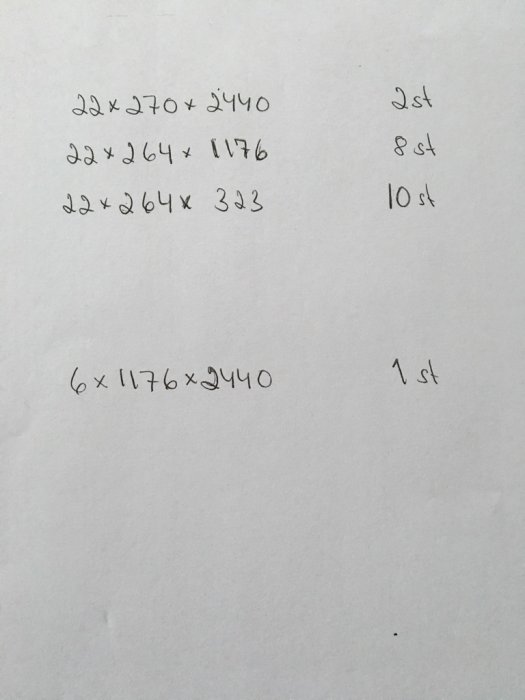 22 x 270 x 2440 2 st
22 x 264 x 1176 8 st
22 x 264 x 323 10 st
6 x 1176 x 2440 1 st